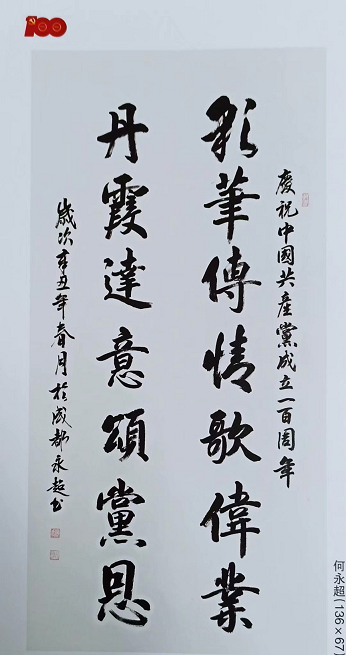 100
慶祝中國共產黨成立一百周年
彩筆傳情歌偉業
丹霞達意頌黨恩
歲次辛丑年春月於成都永超书
何永超(136×67)